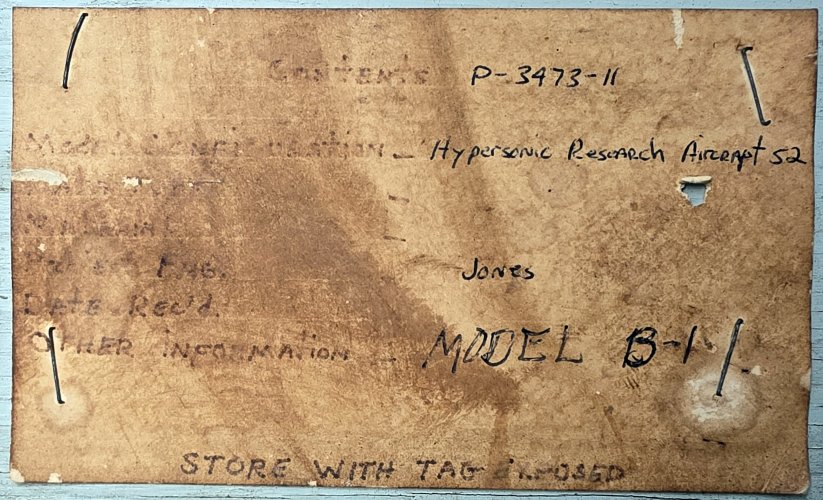 Contents P-3473-11
Model Configuration - Hypersonic Research Aircraft 52
Project Eng. Jones
Date Rec'd.
Other Information - MODEL B-1
STORE WITH TAG EXPOSED